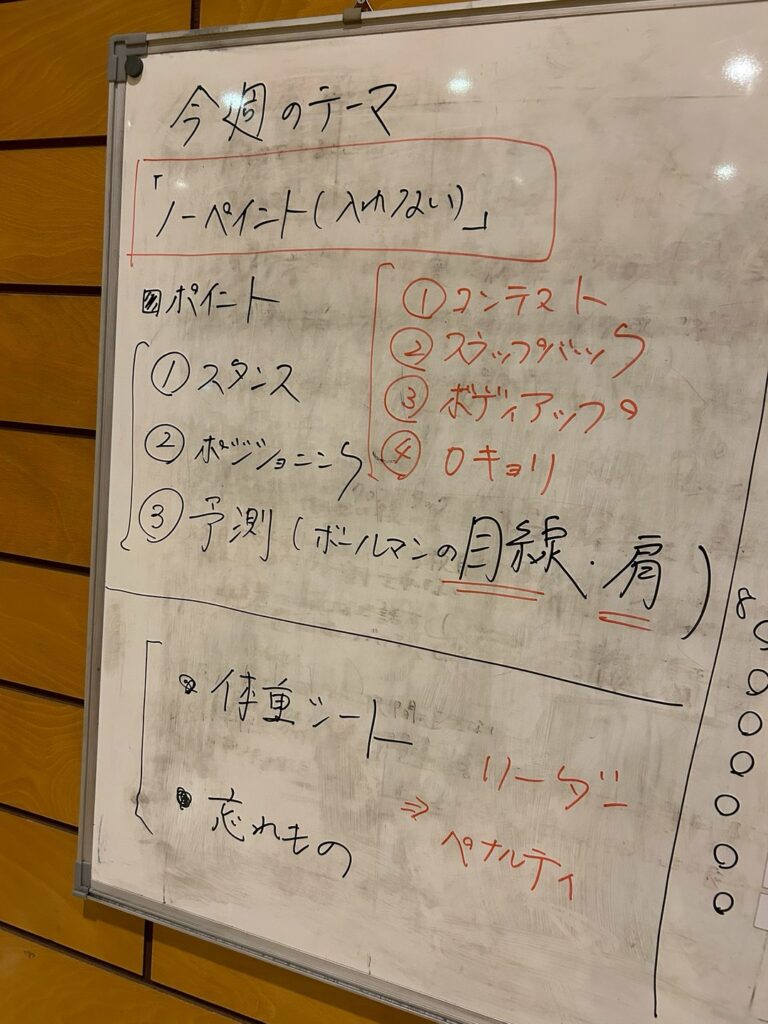 今週のテーマ
「ノーペイント(入れない)」
ポイント
① スタンス
② ポジショニング
③ 予測(ボールマンの目線・肩)
① コンテスト
② スラップバック
③ ボディアップ
④ 0キョリ
・体重シート
・忘れもの
⇒
リーダー
ペナルティ
8